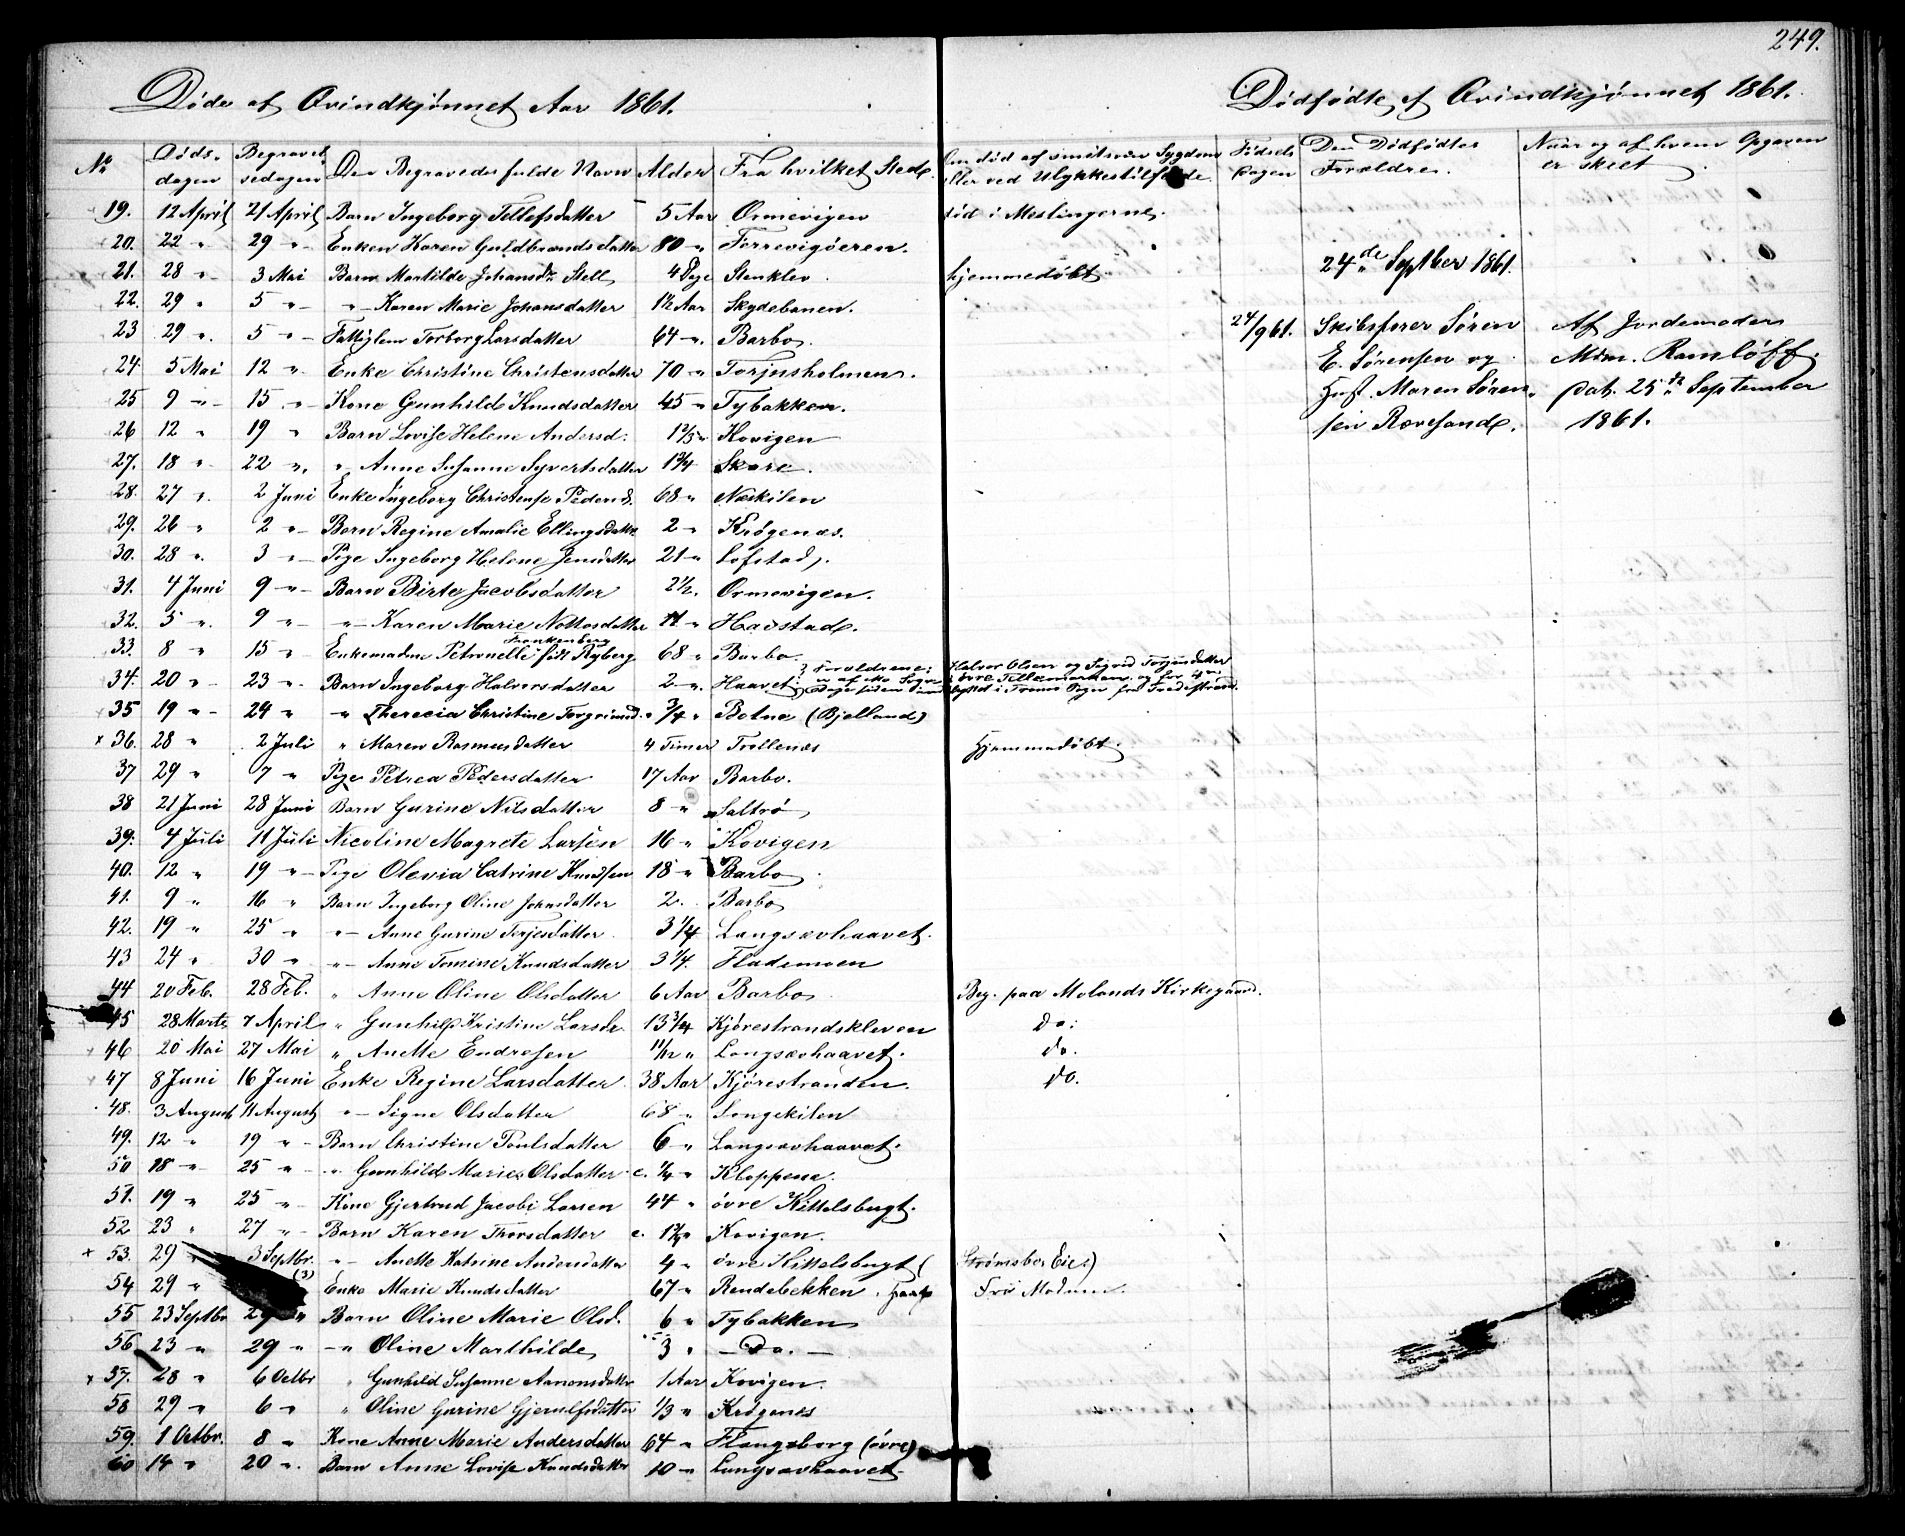 249.
Døde af Qvindkjønnet Aar 1861.
Dødfødte af Qvindkjønnet 1861.
No Døds-dagen Begravel-sesdagen Den Begravedes fulde Navn Alder Fra hvilket Sted. Om død af smitsom Sygdom eller ved Ulykkestilfælde. Fødsels Dagen Den Dødfødtes Forældre. Naar og af hvem Opgaven er skeet
19. 12 April 21 April Barn Ingeborg Tellefsdatter 5 Aar Ormevigen død i Meslingerne.
20. 22 " 29 " Enken Karen Guldbrandsdatter 80 " Torrevigøeren.
21. 28 " 3 Mai Barn Martilde Johansdr Stell 4 Dage Stenklev hjemmedøbt
22. 29 " 5 " " Karen Marie Johansdatter 1½ Aar Skydebanen.
23 29 " 5 " Fattiglem Torborg Larsdatter 64 " Barbo.
24. 5 Mai 12 " Enke Christine Christensdatter 70 " Torjusholmen.
25 9 " 15 " Kone Gunhild Knudsdatter 45 " Tybakken.
26 12 " 19 " Barn Lovise Helene Andersd: 1 2/5 " Kovigen
27. 18 " 22 " " Anne Susanne Syvertsdatter 1 3/4 Skare.
28. 27 " 2 Juni Enke Ingeborg Christense Pedersd. 68 " Næskilen
29. 26 " 2 " Barn Regine Amalie Ellingsdatter 2 " Krøgenæs.
30. 28 " 3 " Pige Ingeborg Helene Jensdatter 21 " Lofstad.
31. 4 Juni 9 " Barn Birte Jacobsdatter 2½ Ormevigen.
32. 5 " 9 " " Karen Marie Nottosdatter 11 " Havstad.
33. 8 " 15 " Enkemadme Petronelle født Ryberg Frankenberg 68 " Barbo.
34. 20 " 23 " Barn Ingeborg Halvorsdatter 2 " Haavet. Forældrene: Halvor Olsen og Sigrid Torjusdatter
er af Mo Sogn i øvre Tellemarken og for 4re
Dage siden indflyttet i Tromø Sogn fra Fredrikstrand.
35 19 " 24 " " Therecia Christine Torgrimsd. 3/4 " Botne (Bjelland)
x 36. 28 " 2 Juli " Maren Rasmusdatter 4 Timer Trollenæs Hjemmedøbt.
37 29 " 7 " Pige Petrea Pedersdatter 17 Aar Barbo.
38 21 Juni 28 Juni Barn Gurine Nilsdatter 8 " Saltrø
39. 4 Juli 11 Juli Nicoline Magrete Larsen 16 " Kovigen
40. 12 " 19 " Pige Olevia Catrine Knudsen 18 " Barbo
41. 9 " 16 " Barn Ingeborg Oline Johnsdatter 2. Barbo
42. 19 " 25 " " Anne Gurine Terjesdatter 3 1/4 Langsævhaavet.
43 24 " 30 " " Anne Tomine Knudsdatter 3 1/4. Flademoen
44 20 Feb. 28 Feb. " Anne Oline Olsdatter 6 Aar Barbo Beg. paa Molands Kirkegaard.
45 28 Marts 7 April " Gunhild Kristine Larsdr 13 3/4 Kjørestrandskleven do:
46 20 Mai 27 Mai " Anette Endresen 11/12 " Langsævhaavet. do.
47 8 Juni 16 Juni Enke Regine Larsdatter 38 Aar Kjørestranden. do.
48. 3 August 11 August " Signe Olsdatter 68 " Songekilen
49. 12 " 19 " Barn Christine Poulsdatter 6 " Langsævhaavet.
50 18 " 25 " " Gunhild Marie Olsdatter c. 1/4 " Kloppene.
51. 19 " 25 " Kone Gjertrud Jacobi Larsen 44 " øvre Kittelsbugt.
52 23 " 27 " Barn Karen Thorsdatter c. Kovigen.
x 53. 29 3 Septbr. " Anette Katrine Andersdatter 4 " øvre Kittelsbugt (Strømsbo Eie.)
54 29 " (3) Enke Marie Knudsdatter 67 " Rendebekken Fra Modum.
55 23 Septbr 29 " Barn Oline Marie Olsd. 6 " Tybakken
56 23 " 29 " " Oline Marthilde 3 " Do.
x 57. 28 " 6 Octbr " Gunhild Susanne Aanonsdatter 1 Aar Kovigen.
58 29 " 6 " " Oline Gurine Gjerulfsdatter 1/3 " Krøgenes
59. 1 Octbr. 8 " Kone Anne Marie Andersdatter 64 " Flangeborg (øvre)
60 14 " 20 " Barn Anne Lovise Knudsdatter 10 " Langsævhaavet
24de Septber 1861.
24/9 61. Skibsfører Søren E. Sørensen og Hust. Maren Sørensen Rævesand.
Af Jordemoder Mdm. Ramløff. Dat. 25de September 1861.